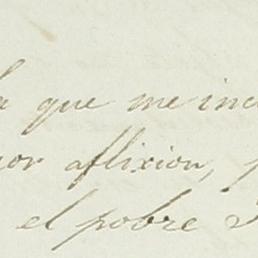 que me inc
or aflixion,
el pobre